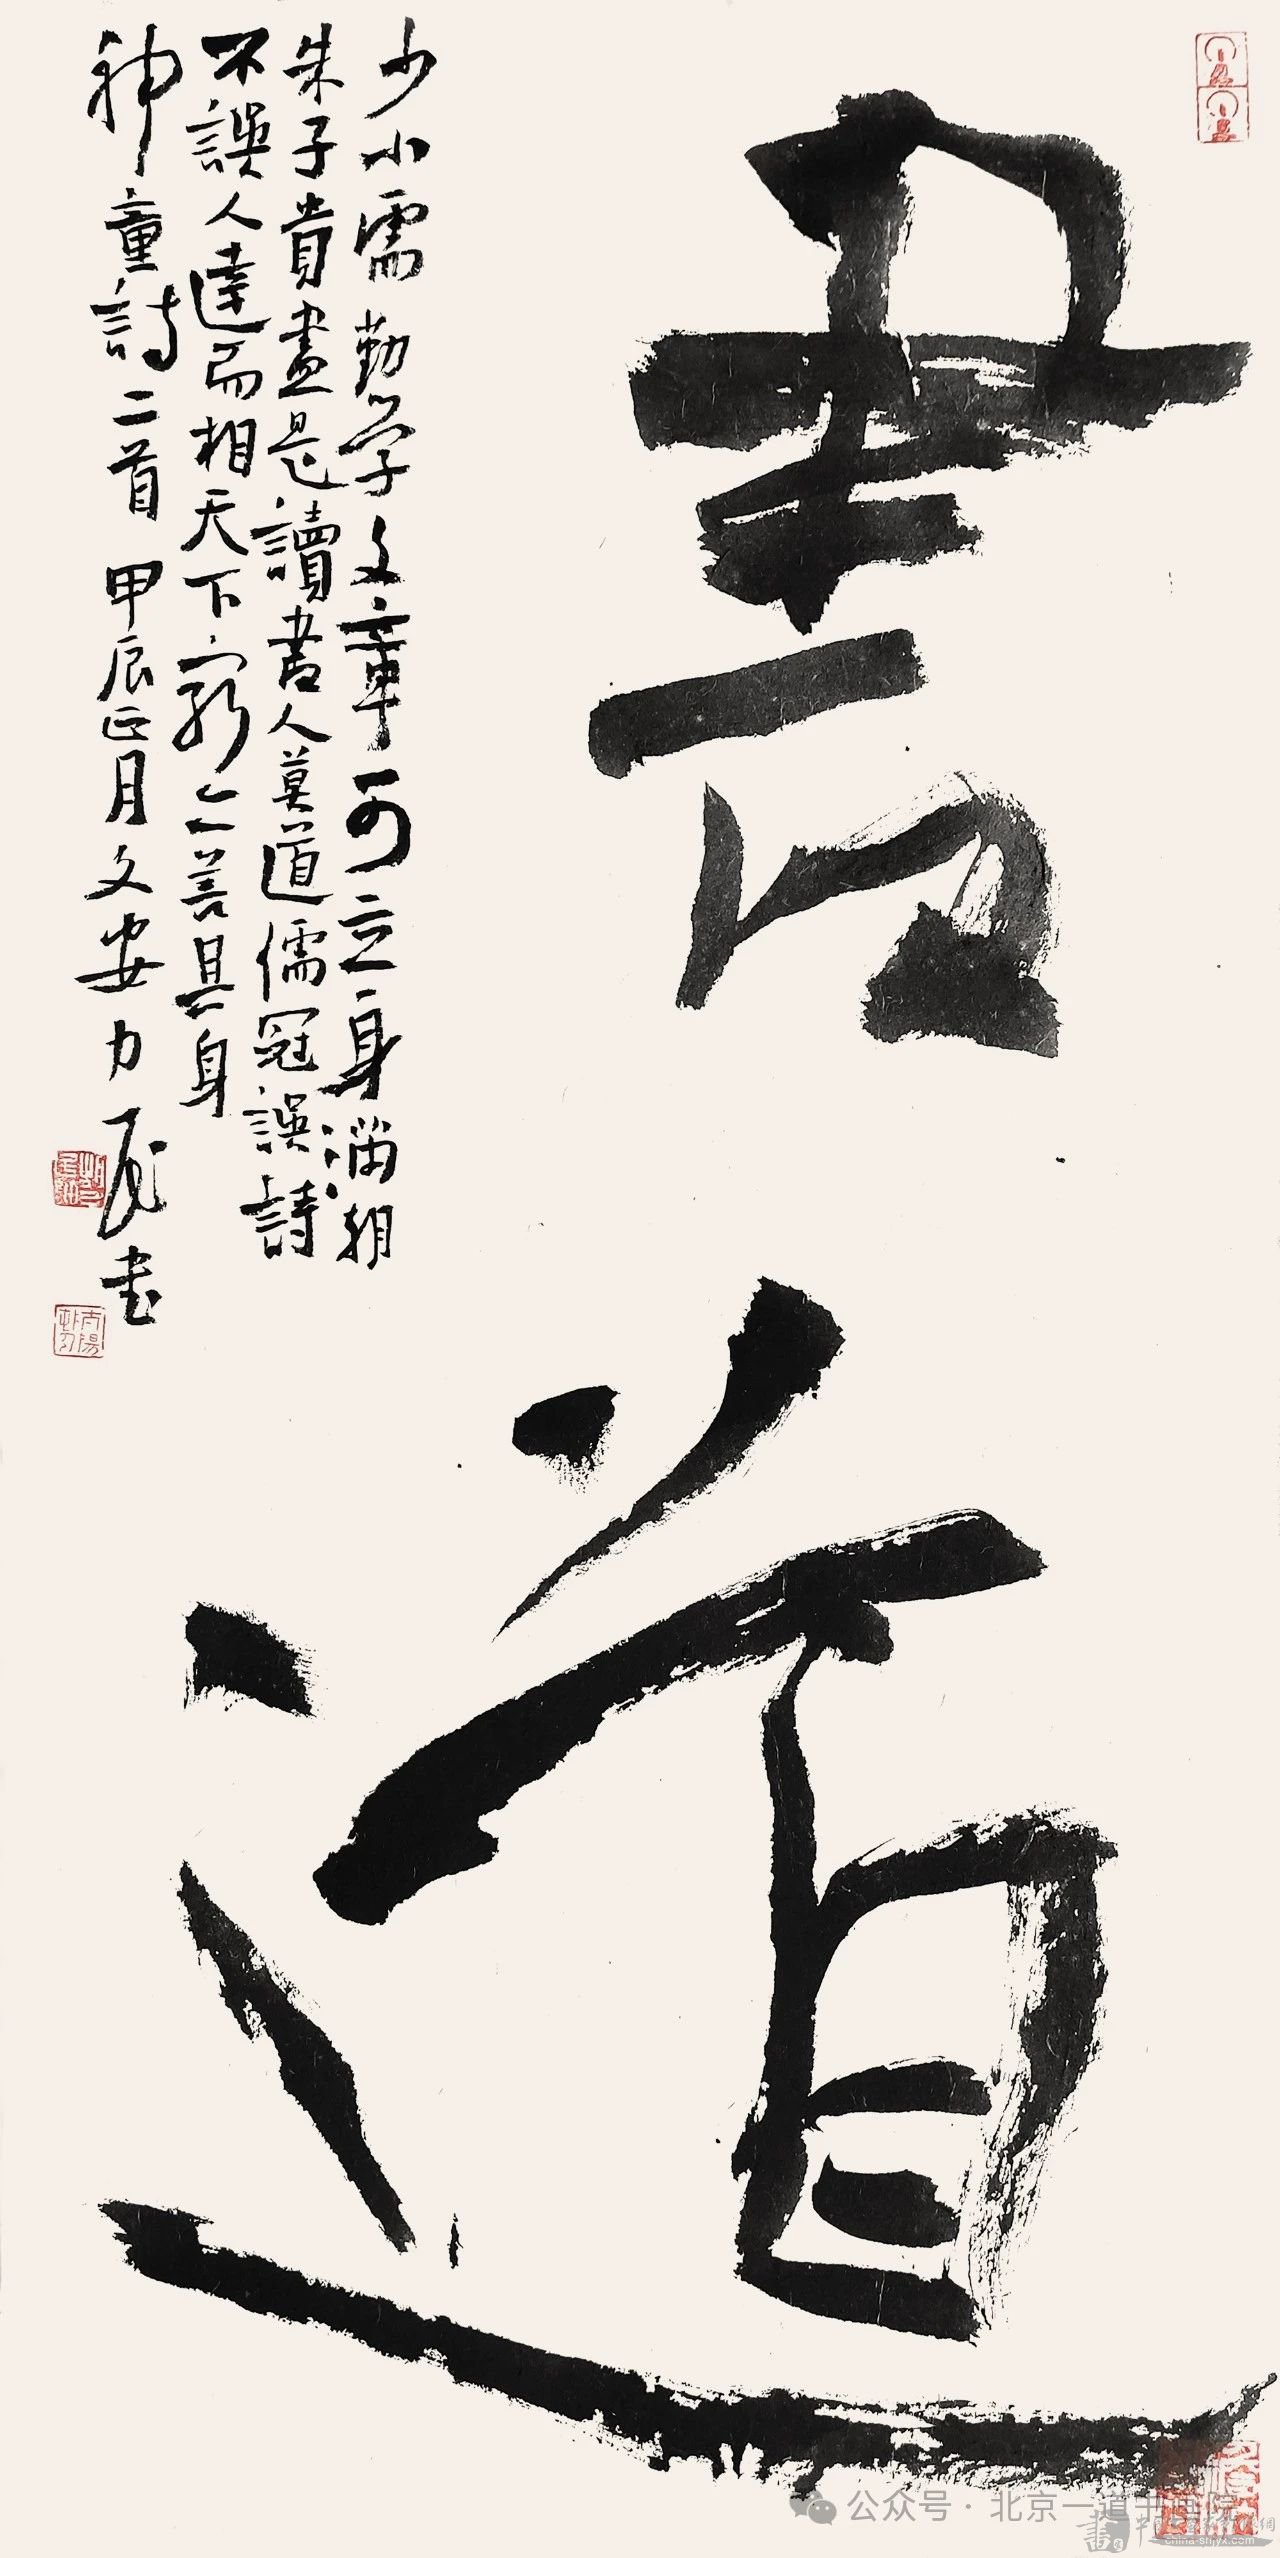 書道
少小需勤学文章可立身滿朝
朱子貴盡是讀書人莫道儒冠誤詩
不誤人達而相天下窮亦善其身
神童詩二首 甲辰正月文安力 书
公众号·北京一道书画院
china-shjyx.com